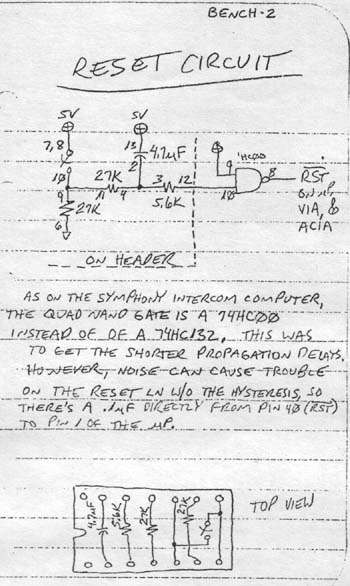 BENCH-2
RESET CIRCUIT
5V 5V
7,8 13 4.7µF 'HC00
2 9
10 27K 3 12 8 RST
9 11 4 5.6K 10 ON µP,
27K VIA, &
6 ACIA
ON HEADER
AS ON THE SYMPHONY INTERCOM COMPUTER,
THE QUAD NAND GATE IS A 74HC00
INSTEAD OF OF A 74HC132. THIS WAS
TO GET THE SHORTER PROPAGATION DELAYS.
HOWEVER, NOISE CAN CAUSE TROUBLE
ON THE RESET LN W/O THE HYSTERESIS, SO
THERE'S A .1µF DIRECTLY FROM PIN 40 (RST)
TO PIN 1 OF THE µP.
4.7µF 5.6K 27K 27K TOP VIEW